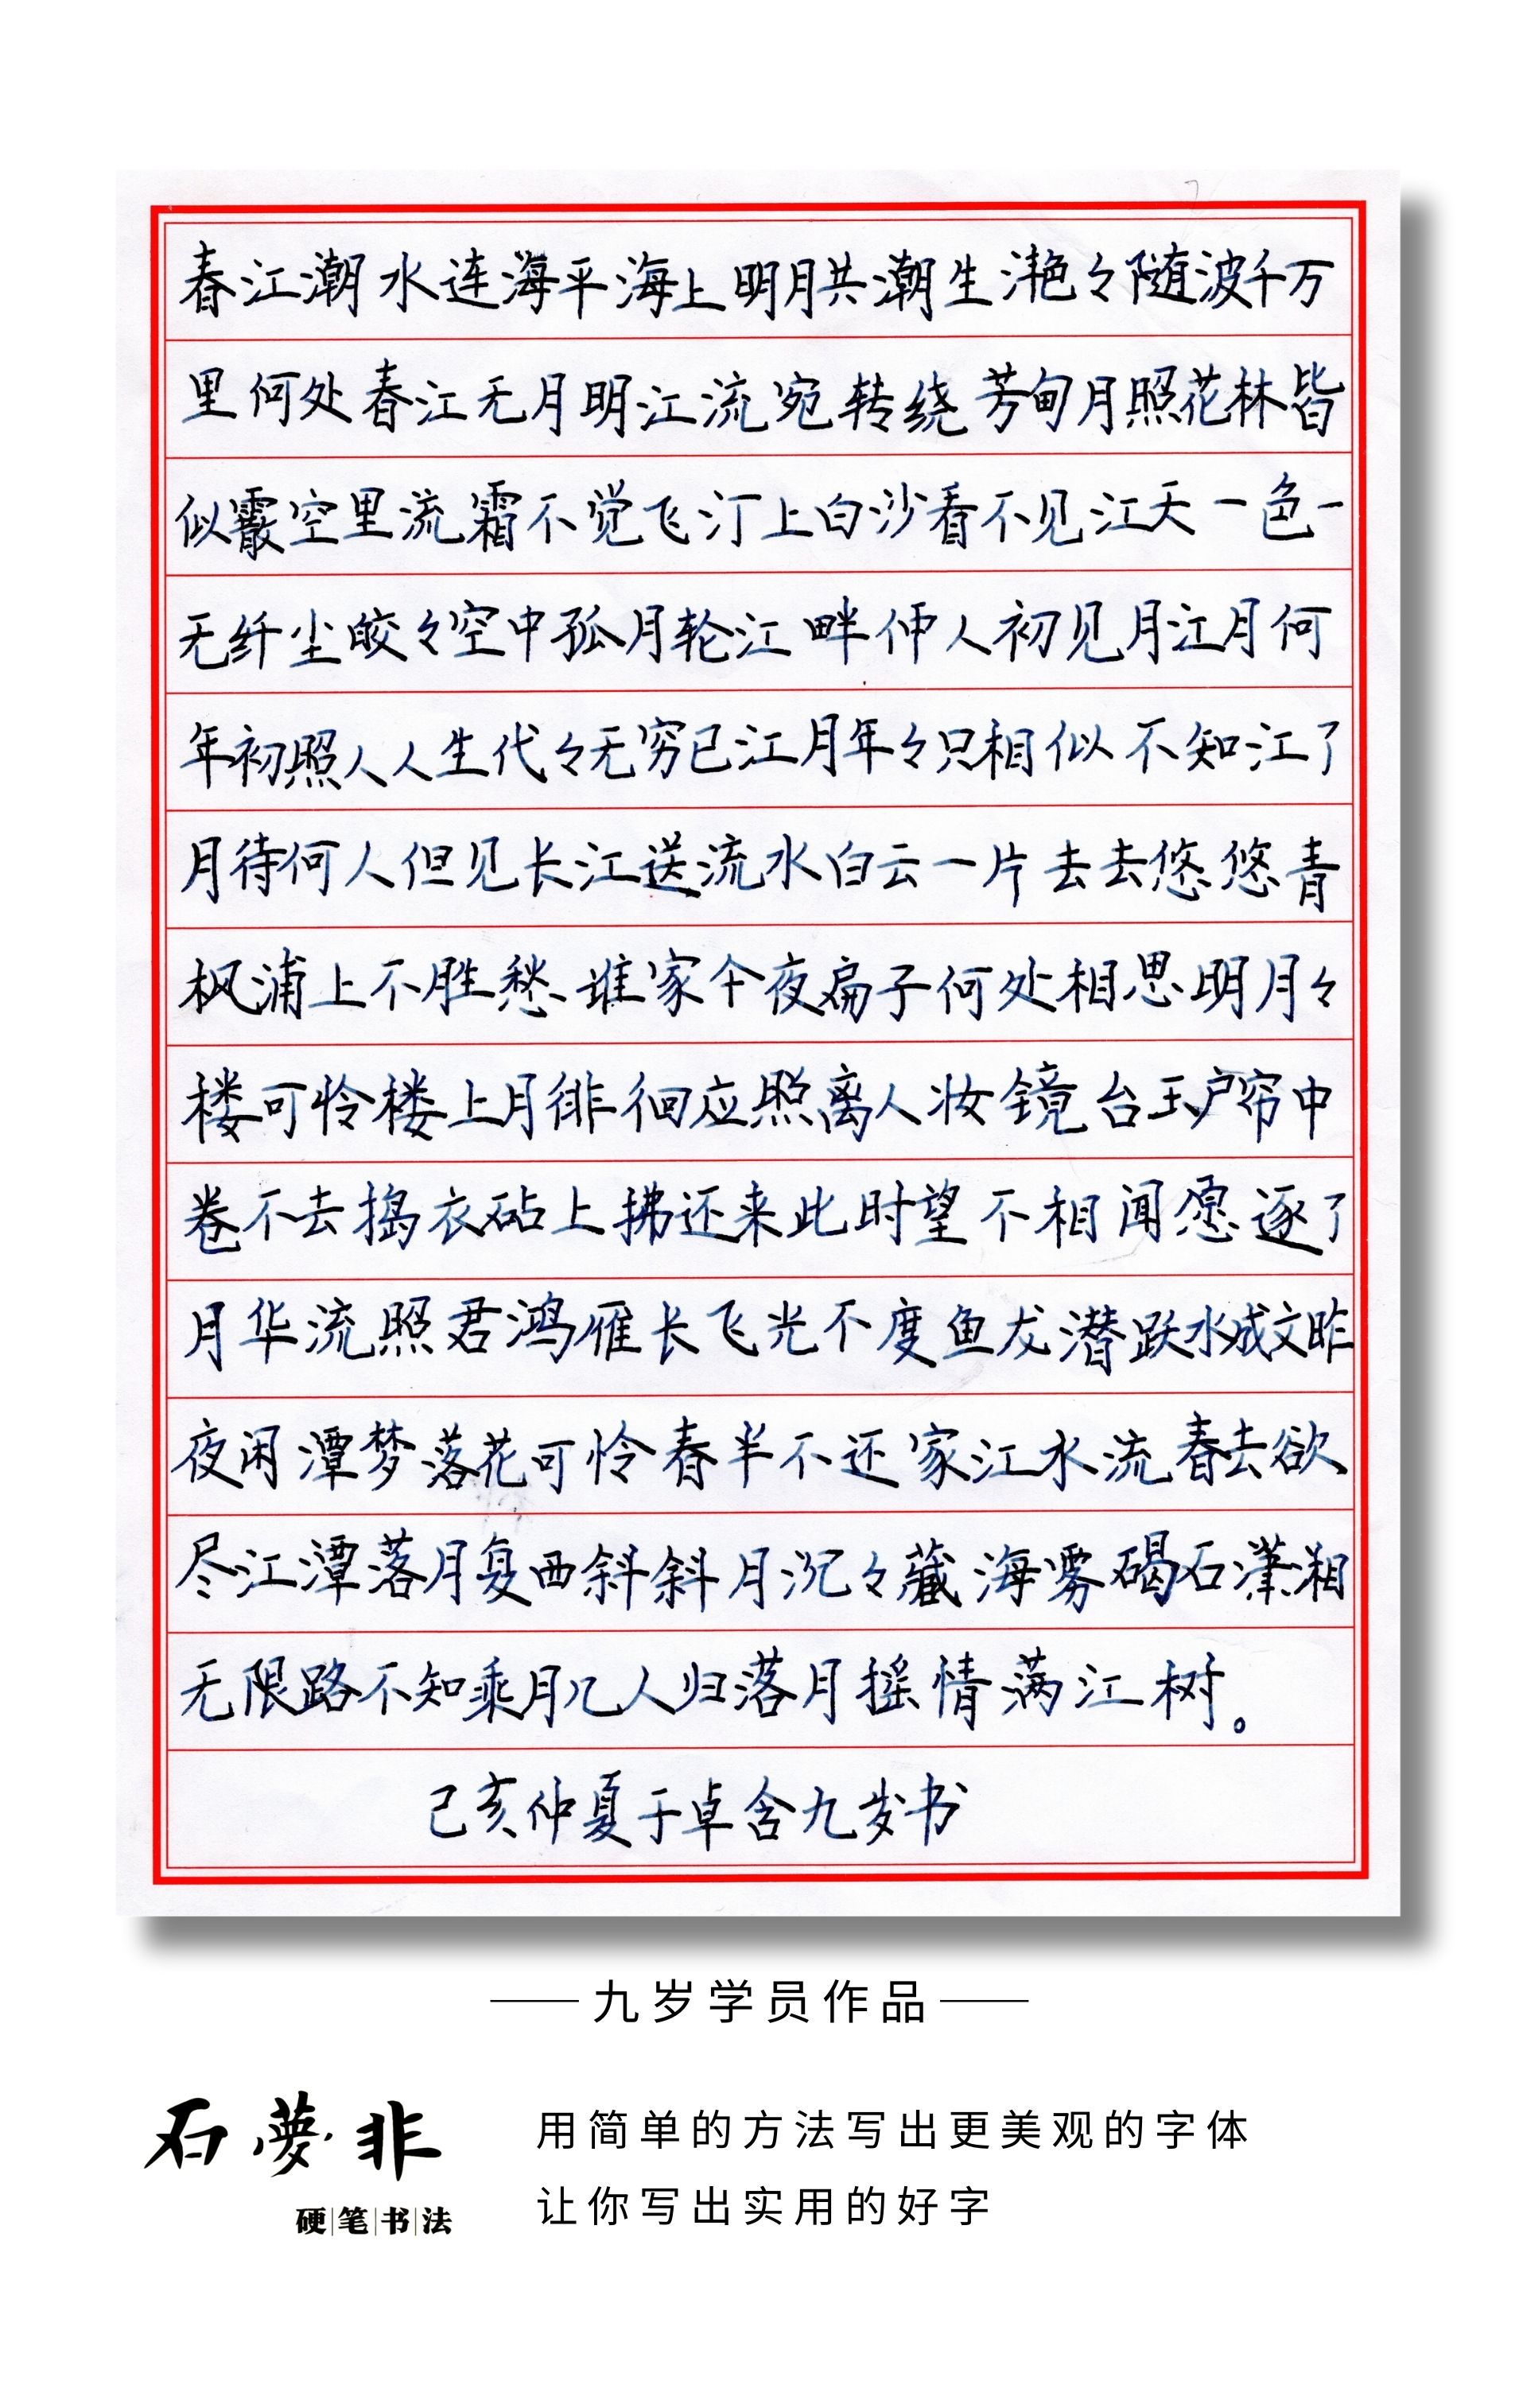 春江潮水连海平海上明月共潮生滟々随波千万
里何处春江无月明江流宛转绕芳甸月照花林皆
似霰空里流霜不觉飞汀上白沙看不见江天一色一
无纤尘皎々空中孤月轮江畔何人初见月江月何
年初照人人生代々无穷已江月年々只相似不知江了
月待何人但见长江送流水白云一片去去悠悠青
枫浦上不胜愁谁家今夜扁子何处相思明月々
楼可怜楼上月徘徊应照离人妆镜台玉户帘中
卷不去捣衣砧上拂还来此时望不相闻愿逐了
月华流照君鸿雁长飞光不度鱼龙潜跃水成文昨
夜闲潭梦落花可怜春半不还家江水流春去欲
尽江潭落月复西斜斜月沉々藏海雾碣石潇湘
无限路不知乘月几人归落月摇情满江树。
己亥仲夏于卓含九岁书
九岁学员作品
石夢非
硬笔书法
用简单的方法写出更美观的字体
让你写出实用的好字